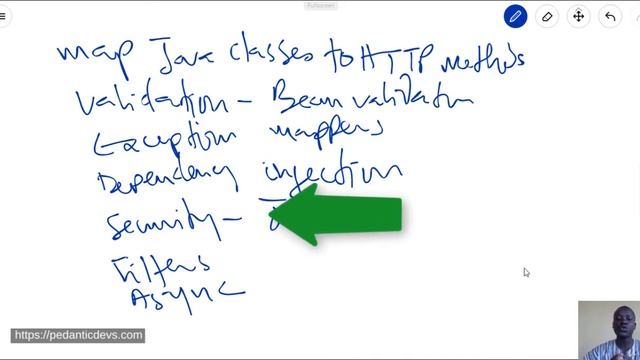 Fullscreen
map Java classes to HTTP methods
Validation - Bean validatn
Exception mappers
Dependency injection
Security -
Filters
Async
https://pedanticdevs.com